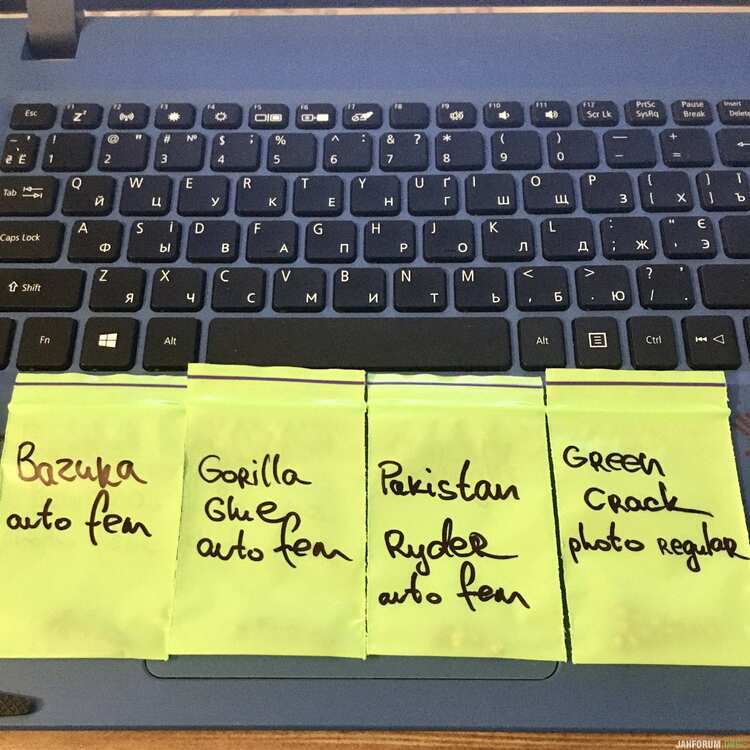 Esc F1 F2 F3 F4 F5 F6 F7 F8 F9 F10 F11 F12 Scr Lk PrtSc SysRq Pause Break Insert Delete
! 1 @ " 2 # № 3 $ ; 4 % 5 ^ : 6 & ? 7 * 8 ( 9 ) 0 _ - + =
Tab Q Й W Ц E У R К T Е Y Н U Г Ґ I Ш O Щ P З { [ Х } ] Ї Ъ
Caps Lock A Ф S І Ы D В F А G П H Р J О K Л L Д : ; Ж " ' Є Э
Shift Z Я X Ч C С V М B И N Т M Ь < , Б > . Ю ? / .
Fn Alt Alt Ctrl
Bazuka
auto fem
Gorilla
Glue
auto fem
Pakistan
Ryder
auto fem
Green
Crack
photo regular
JAHFORUM